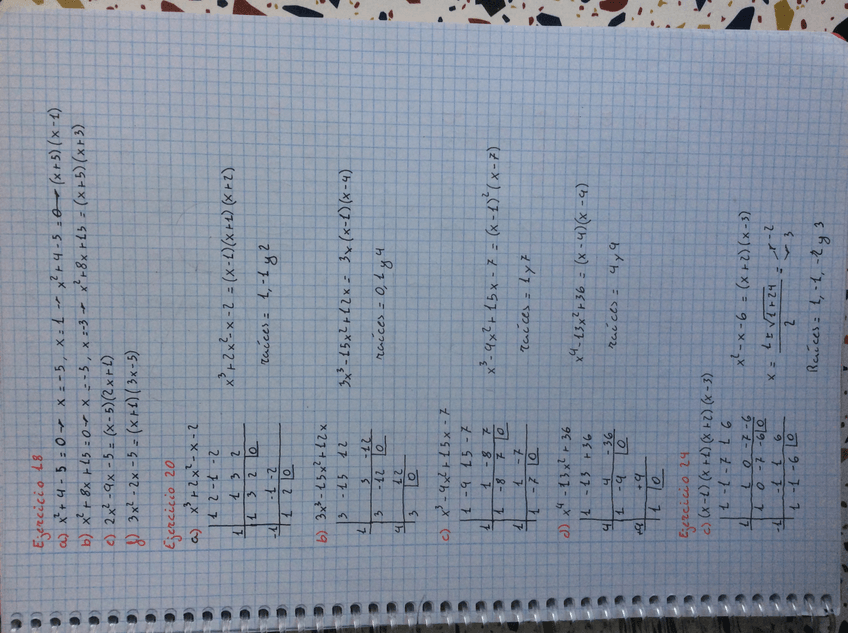 Ejercicio 18
a) x² + 4 - 5 = 0 → x = -5, x = 1 → x² + 4 - 5 = 0 → (x+5)(x-1)
b) x² + 8x + 15 = 0 → x = -5, x = -3 → x² + 8x + 15 = (x+5)(x+3)
c) 2x² - 9x - 5 = (x-5)(2x+1)
f) 3x² - 2x - 5 = (x+1)(3x-5)
Ejercicio 20
a) x³ + 2x² - x - 2
1 2 -1 -2
1 1 3 2
1 3 2 0
-1 -1 -2
1 2 0
x³ + 2x² - x - 2 = (x-1)(x+1)(x+2)
raíces = 1, -1 y 2
b) 3x³ - 15x² + 12x
3 -15 12
1 3 -12
3 -12 0
4 12
3 0
3x³ - 15x² + 12x = 3x(x-1)(x-4)
raíces = 0, 1 y 4
c) x³ - 9x² + 15x - 7
1 -9 15 -7
1 1 -8 7
1 -8 7 0
1 1 -7
1 -7 0
x³ - 9x² + 15x - 7 = (x-1)² (x-7)
raíces = 1 y 7
d) x⁴ - 13x² + 36
1 -13 +36
4 4 -36
1 -9 0
+9 +9
1 0
x⁴ - 13x² + 36 = (x-4)(x-9)
raíces = 4 y 9
Ejercicio 24
c) (x-1)(x+1)(x+2)(x-3)
1 -1 -7 1 6
1 1 0 -7 -6
1 0 -7 -6 0
-1 -1 1 6
1 -1 -6 0
x² - x - 6 = (x+2)(x-3)
x = 1 ± √1+24 / 2 = -2 3
Raíces = 1, -1, -2 y 3